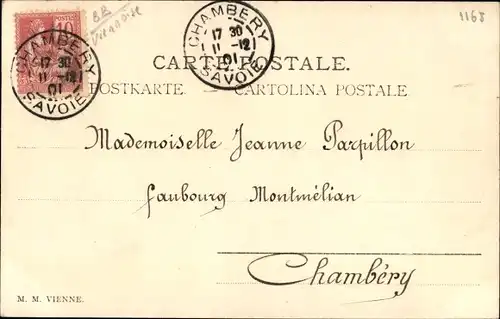 10
BR
Viennoise
1168
CHAMBERY
17 30
11 -12
01
SAVOIE
CHAMBERY
17 30
11 -12
01
SAVOIE
CARTE POSTALE.
POSTKARTE. — CARTOLINA POSTALE.
Mademoiselle Jeanne Parpillon
faubourg Montmélian
Chambéry
M. M. VIENNE.